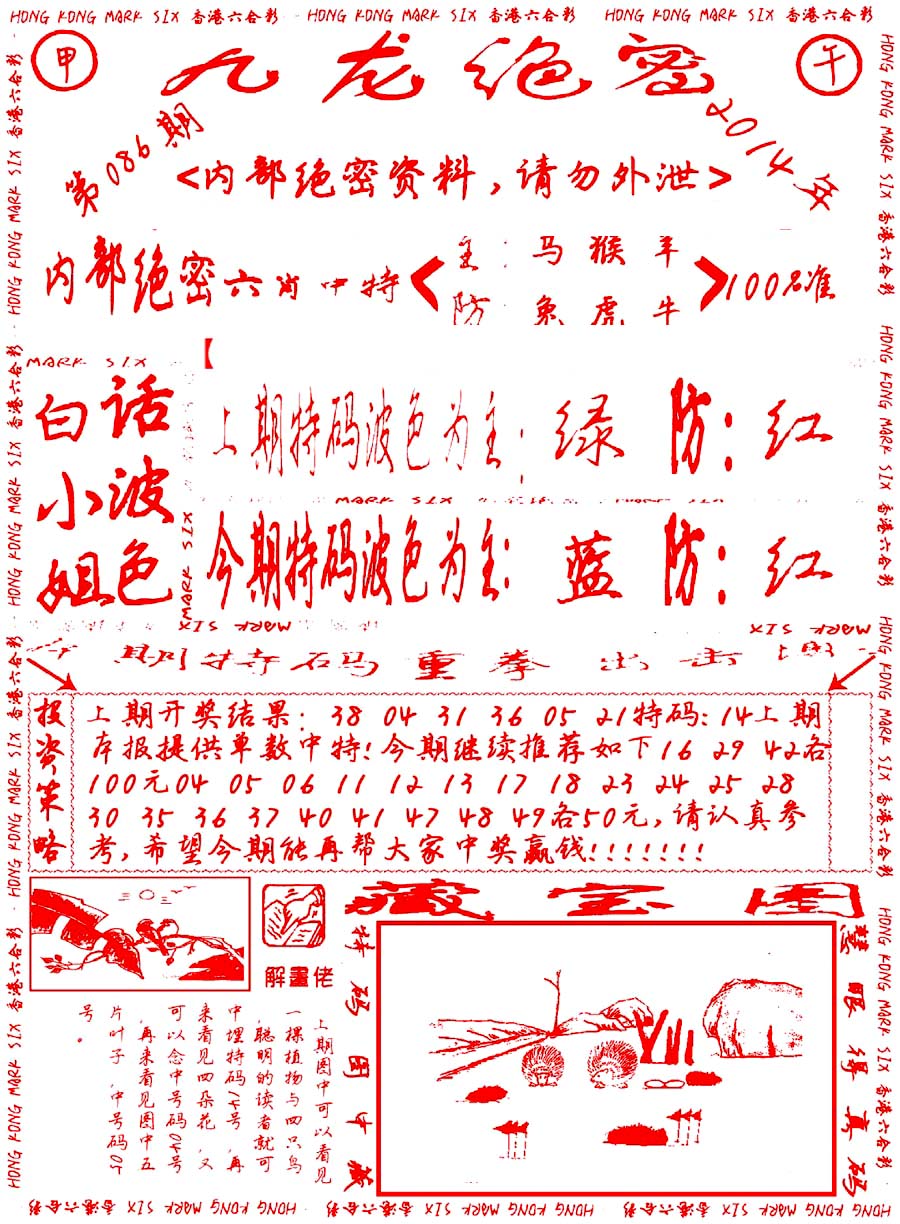 HONG KONG MARK SIX 香港六合彩 HONG KONG MARK SIX 香港六合彩 HONG KONG MARK SIX 香港六合彩
甲
九龙绝密
午
第086期
2014年
<内部绝密资料，请勿外泄>
内部绝密六肖中特
主：马猴羊
防：兔虎牛
100%准
MARK SIX
白小姐
话波色
上期特码波色为主：绿 防：红
MARK SIX
今期特码波色为主：蓝 防：红
MARK SIX
MARK SIX
期特码重拳出击
投资策略
上期开奖结果：38 04 31 36 05 21特码：14上期
本报提供单数中特!今期继续推荐如下16 29 42各
100元04 05 06 11 12 13 17 18 23 24 25 28
30 35 36 37 40 41 47 48 49各50元，请认真参
考，希望今期能再帮大家中奖赢钱!!!!!!!
解畫佬
藏宝图
特码图中藏
慧眼得真码
上期图中可以看见
一棵植物与四只鸟
，聪明的读者就可
中埋特码14号，再
来看见四朵花，又
可以念中号码04号
，再来看见图中五
片叶子，中号码05
号。
HONG KONG MARK SIX 香港六合彩 HONG KONG MARK SIX 香港六合彩 HONG KONG MARK SIX 香港六合彩